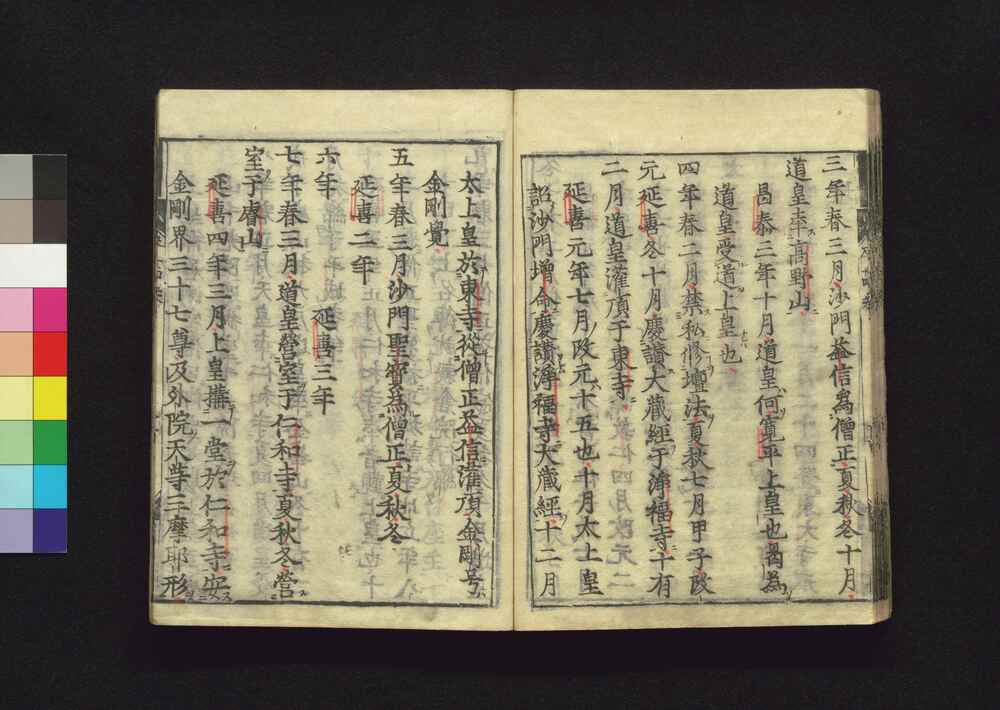 三年春三月沙門益信為僧正夏秋冬十月
道皇幸高野山
昌泰三年十月道皇何寛平上皇也曷為
道皇受道上皇也
四年春二月禁私修壇法夏秋七月甲子改
元延喜冬十月慶讃大蔵経于浄福寺十有
二月道皇灌頂于東寺
延喜元年七月改元十五也十月太上皇
詔沙門増命慶讃浄福寺大蔵経十二月
太上皇於東寺従僧正益信灌頂金剛号
金剛覺
五年春三月沙門聖寳為僧正夏秋冬
延喜二年
六年 延喜三年
七年春三月道皇營室于仁和寺夏秋冬營
室于睿山
延喜四年三月上皇搆一堂於仁和寺安
金剛界三十七尊及外院天等三摩耶形